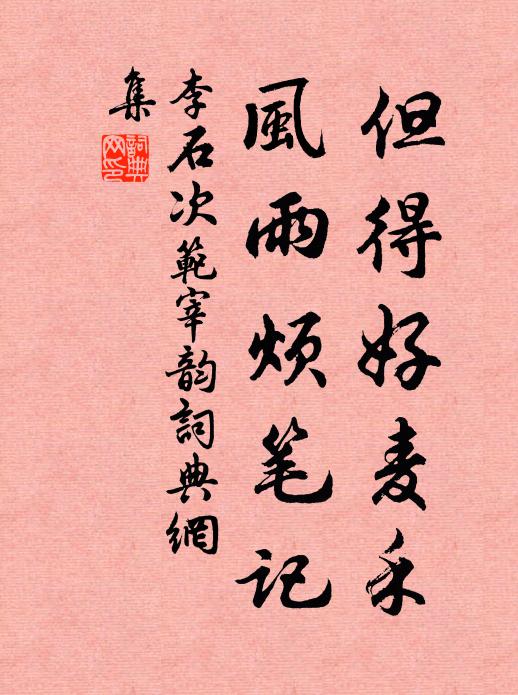 但得好麦禾
風雨煩笔記
李石次範宰韵詞典網
集
詞典网印